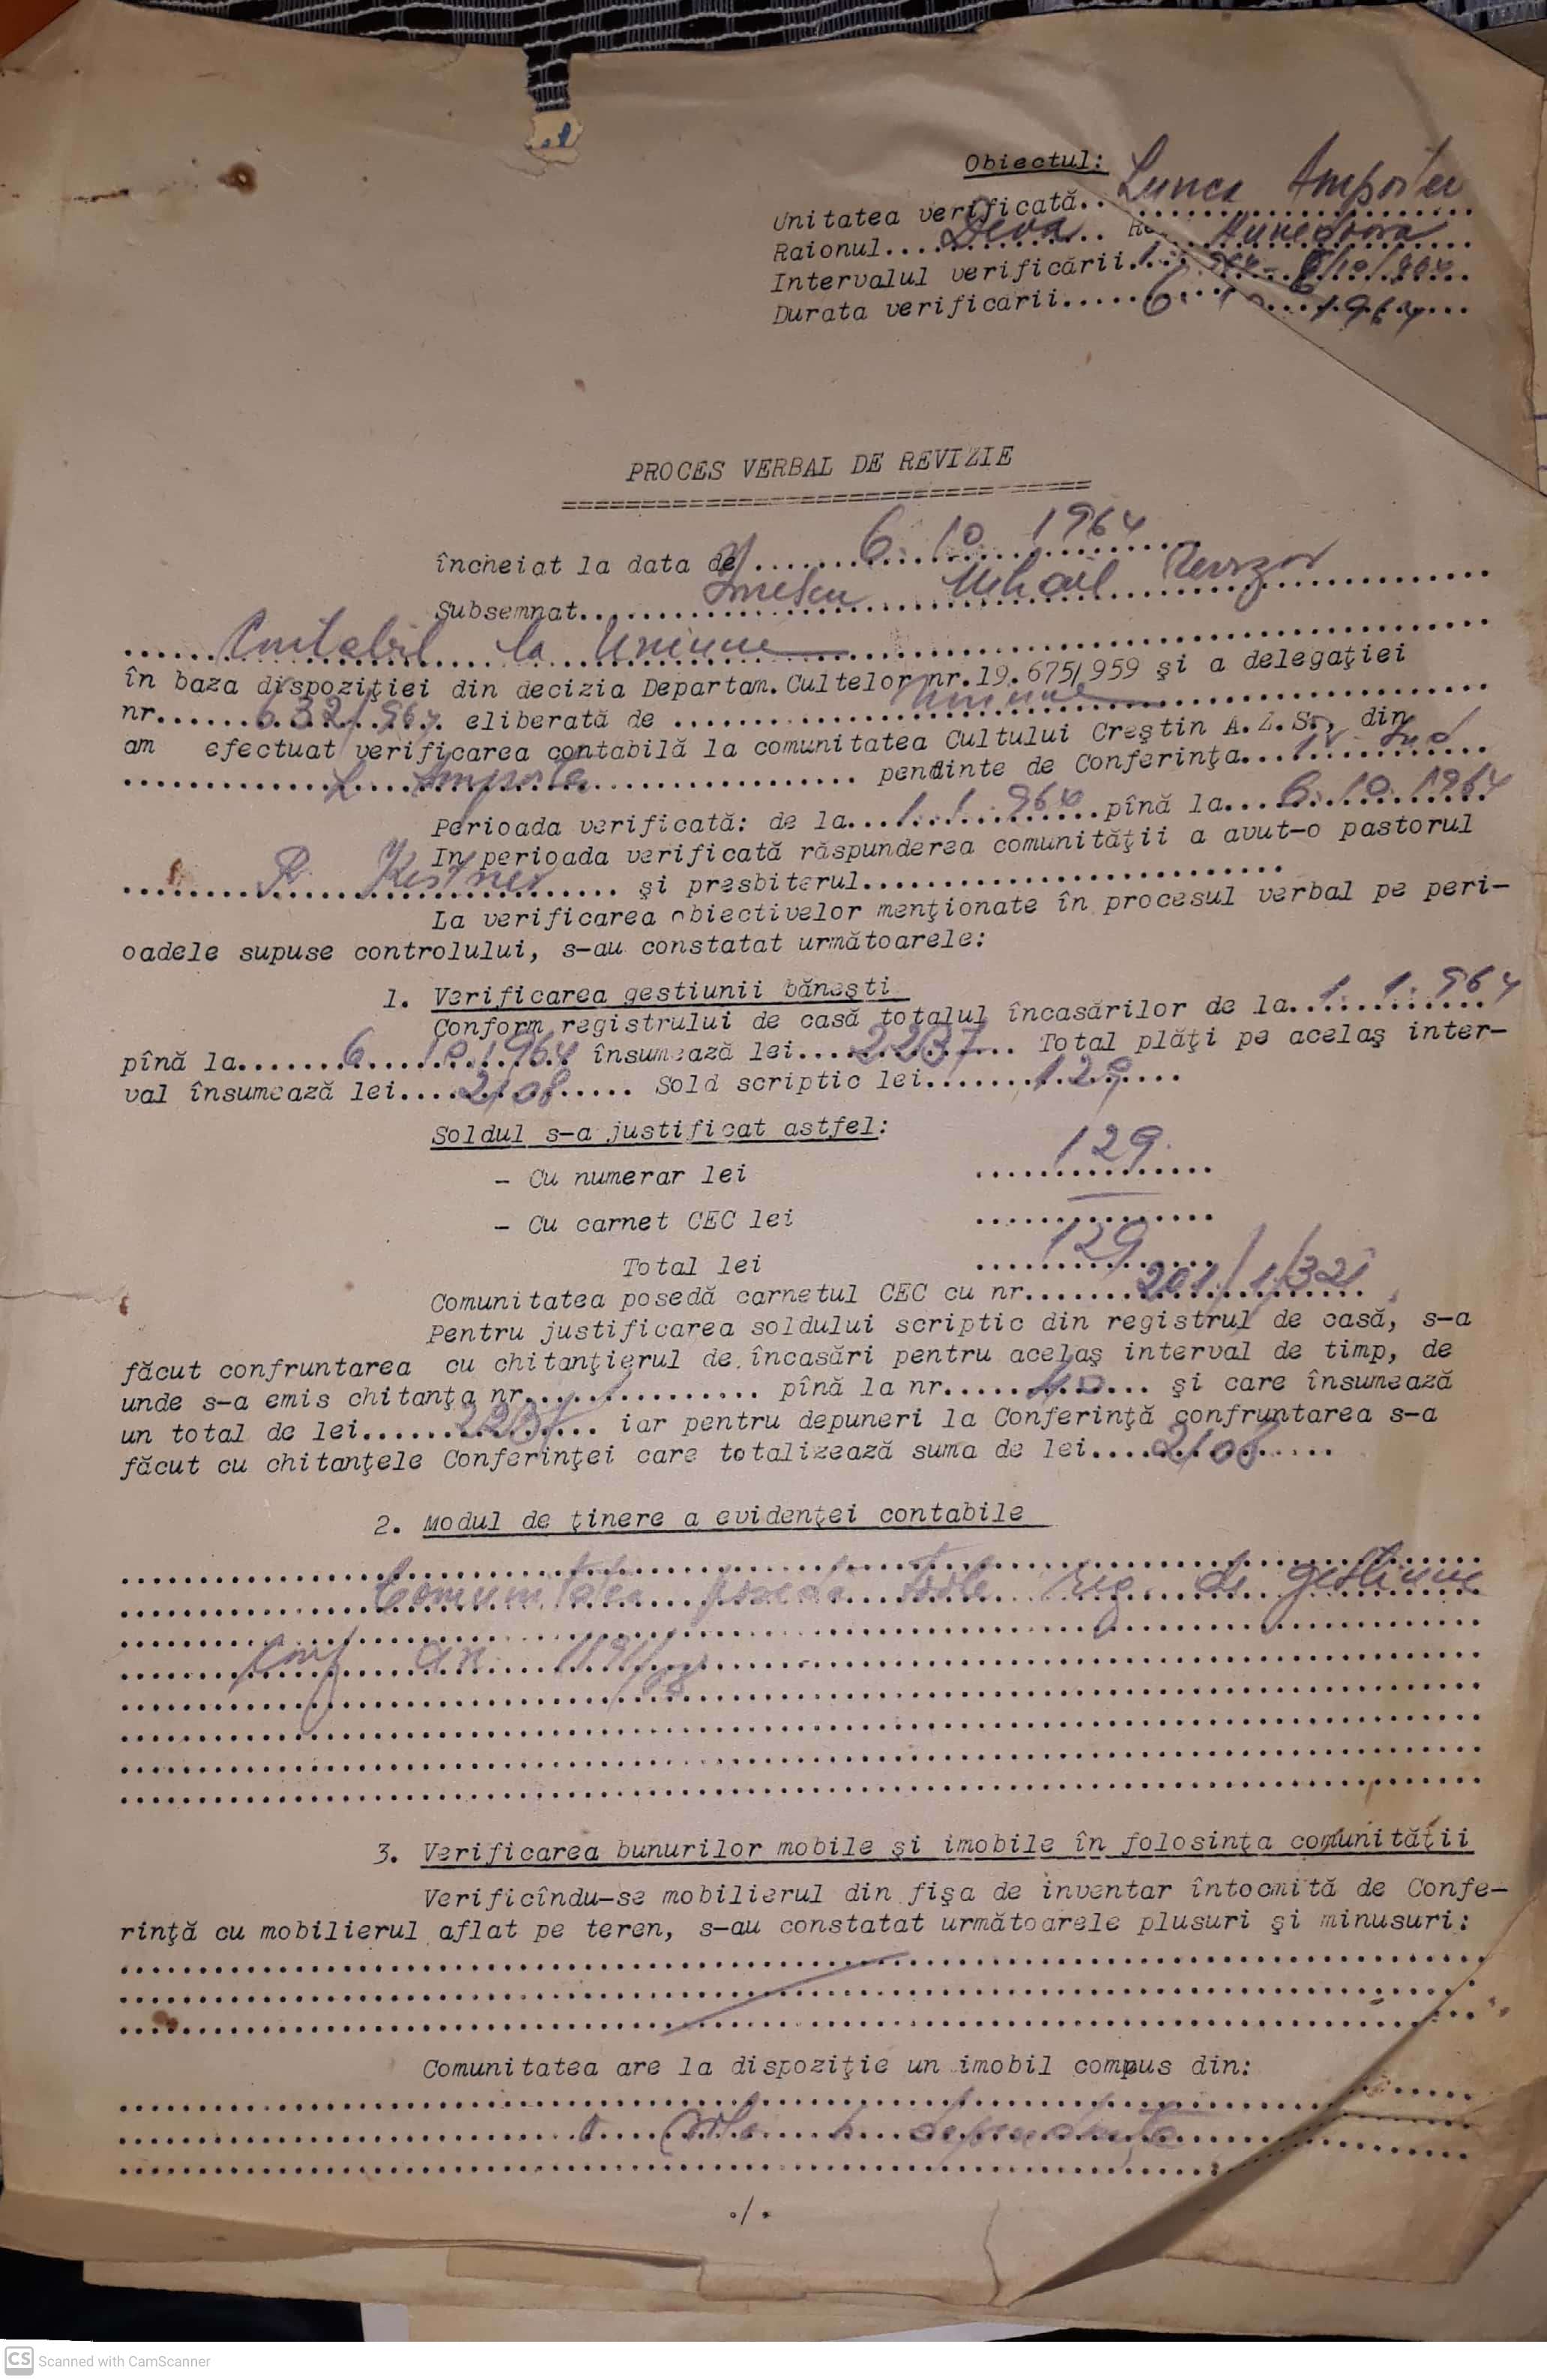 Obiectul:
Unitatea verificată.. Lunca Ampoitei
Raionul.... Deva .... Hunedoara
Intervalul verificării.1. 964 - 6/10/964
Durata verificării..... 6. 10. 1964
PROCES VERBAL DE REVIZIE
încheiat la data de ..... 6. 10. 1964
Subsemnat..... Ionescu Mihail Revizor
Contabil la Uniune
în baza dispoziţiei din decizia Departam. Cultelor nr.19.675/959 şi a delegaţiei
nr..... 632/964 eliberată de ..... Uniune
am efectuat verificarea contabilă la comunitatea Cultului Creştin A.Z.S., din
L. Ampoita ..... pendinte de Conferinţa....
Perioada verificată: de la.... 1. 1. 964 pînă la.... 6. 10. 1964
In perioada verificată răspunderea comunităţii a avut-o pastorul
R. Kestner ..... şi presbiterul.....
La verificarea obiectivelor menţionate în procesul verbal pe peri-
oadele supuse controlului, s-au constatat următoarele:
1. Verificarea gestiunii băneşti
Conform registrului de casă totalul încasărilor de la.. 1. 1. 964
pînă la...... 6. 10. 1964 însumează lei.... 2237 ... Total plăţi pe acelaş inter-
val însumează lei.... 2108 ..... Sold scriptic lei...... 129 ....
Soldul s-a justificat astfel:
- Cu numerar lei 129
- Cu carnet CEC lei —
Total lei 129
Comunitatea posedă carnetul CEC cu nr...... 201/1/321
Pentru justificarea soldului scriptic din registrul de casă, s-a
făcut confruntarea cu chitanţierul de încasări pentru acelaş interval de timp, de
unde s-a emis chitanţa nr.... 1 ........ pînă la nr.... 40 ... şi care însumează
un total de lei..... 2237 .... iar pentru depuneri la Conferinţă confruntarea s-a
făcut cu chitanţele Conferinţei care totalizează suma de lei.... 2108 ....
2. Modul de ţinere a evidenţei contabile
Comunitatea posedă reg. de gestiune
Conf
3. Verificarea bunurilor mobile şi imobile în folosinţa comunităţii
Verificîndu-se mobilierul din fişa de inventar întocmită de Confe-
rinţă cu mobilierul aflat pe teren, s-au constatat următoarele plusuri şi minusuri:
Comunitatea are la dispoziţie un imobil compus din:
./.
CS Scanned with CamScanner